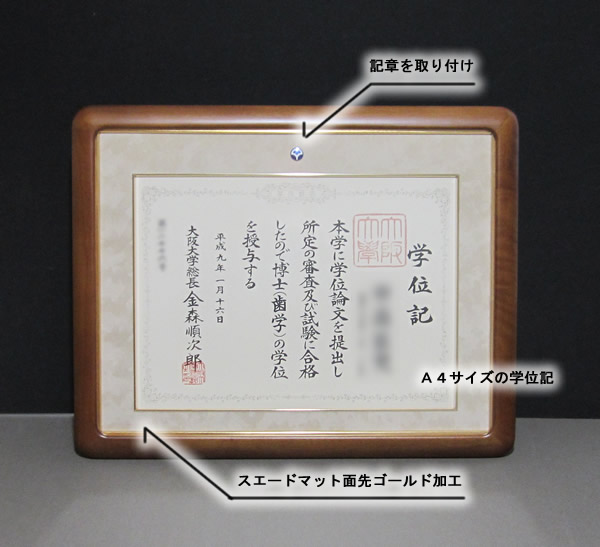 記章を取り付け
学位記
本学に学位論文を提出し
所定の審査及び試験に合格
したので博士(歯学)の学位
を授与する
平成九年一月十六日
大阪大学総長 金森順次郎
大阪大学
A4サイズの学位記
スエードマット面先ゴールド加工